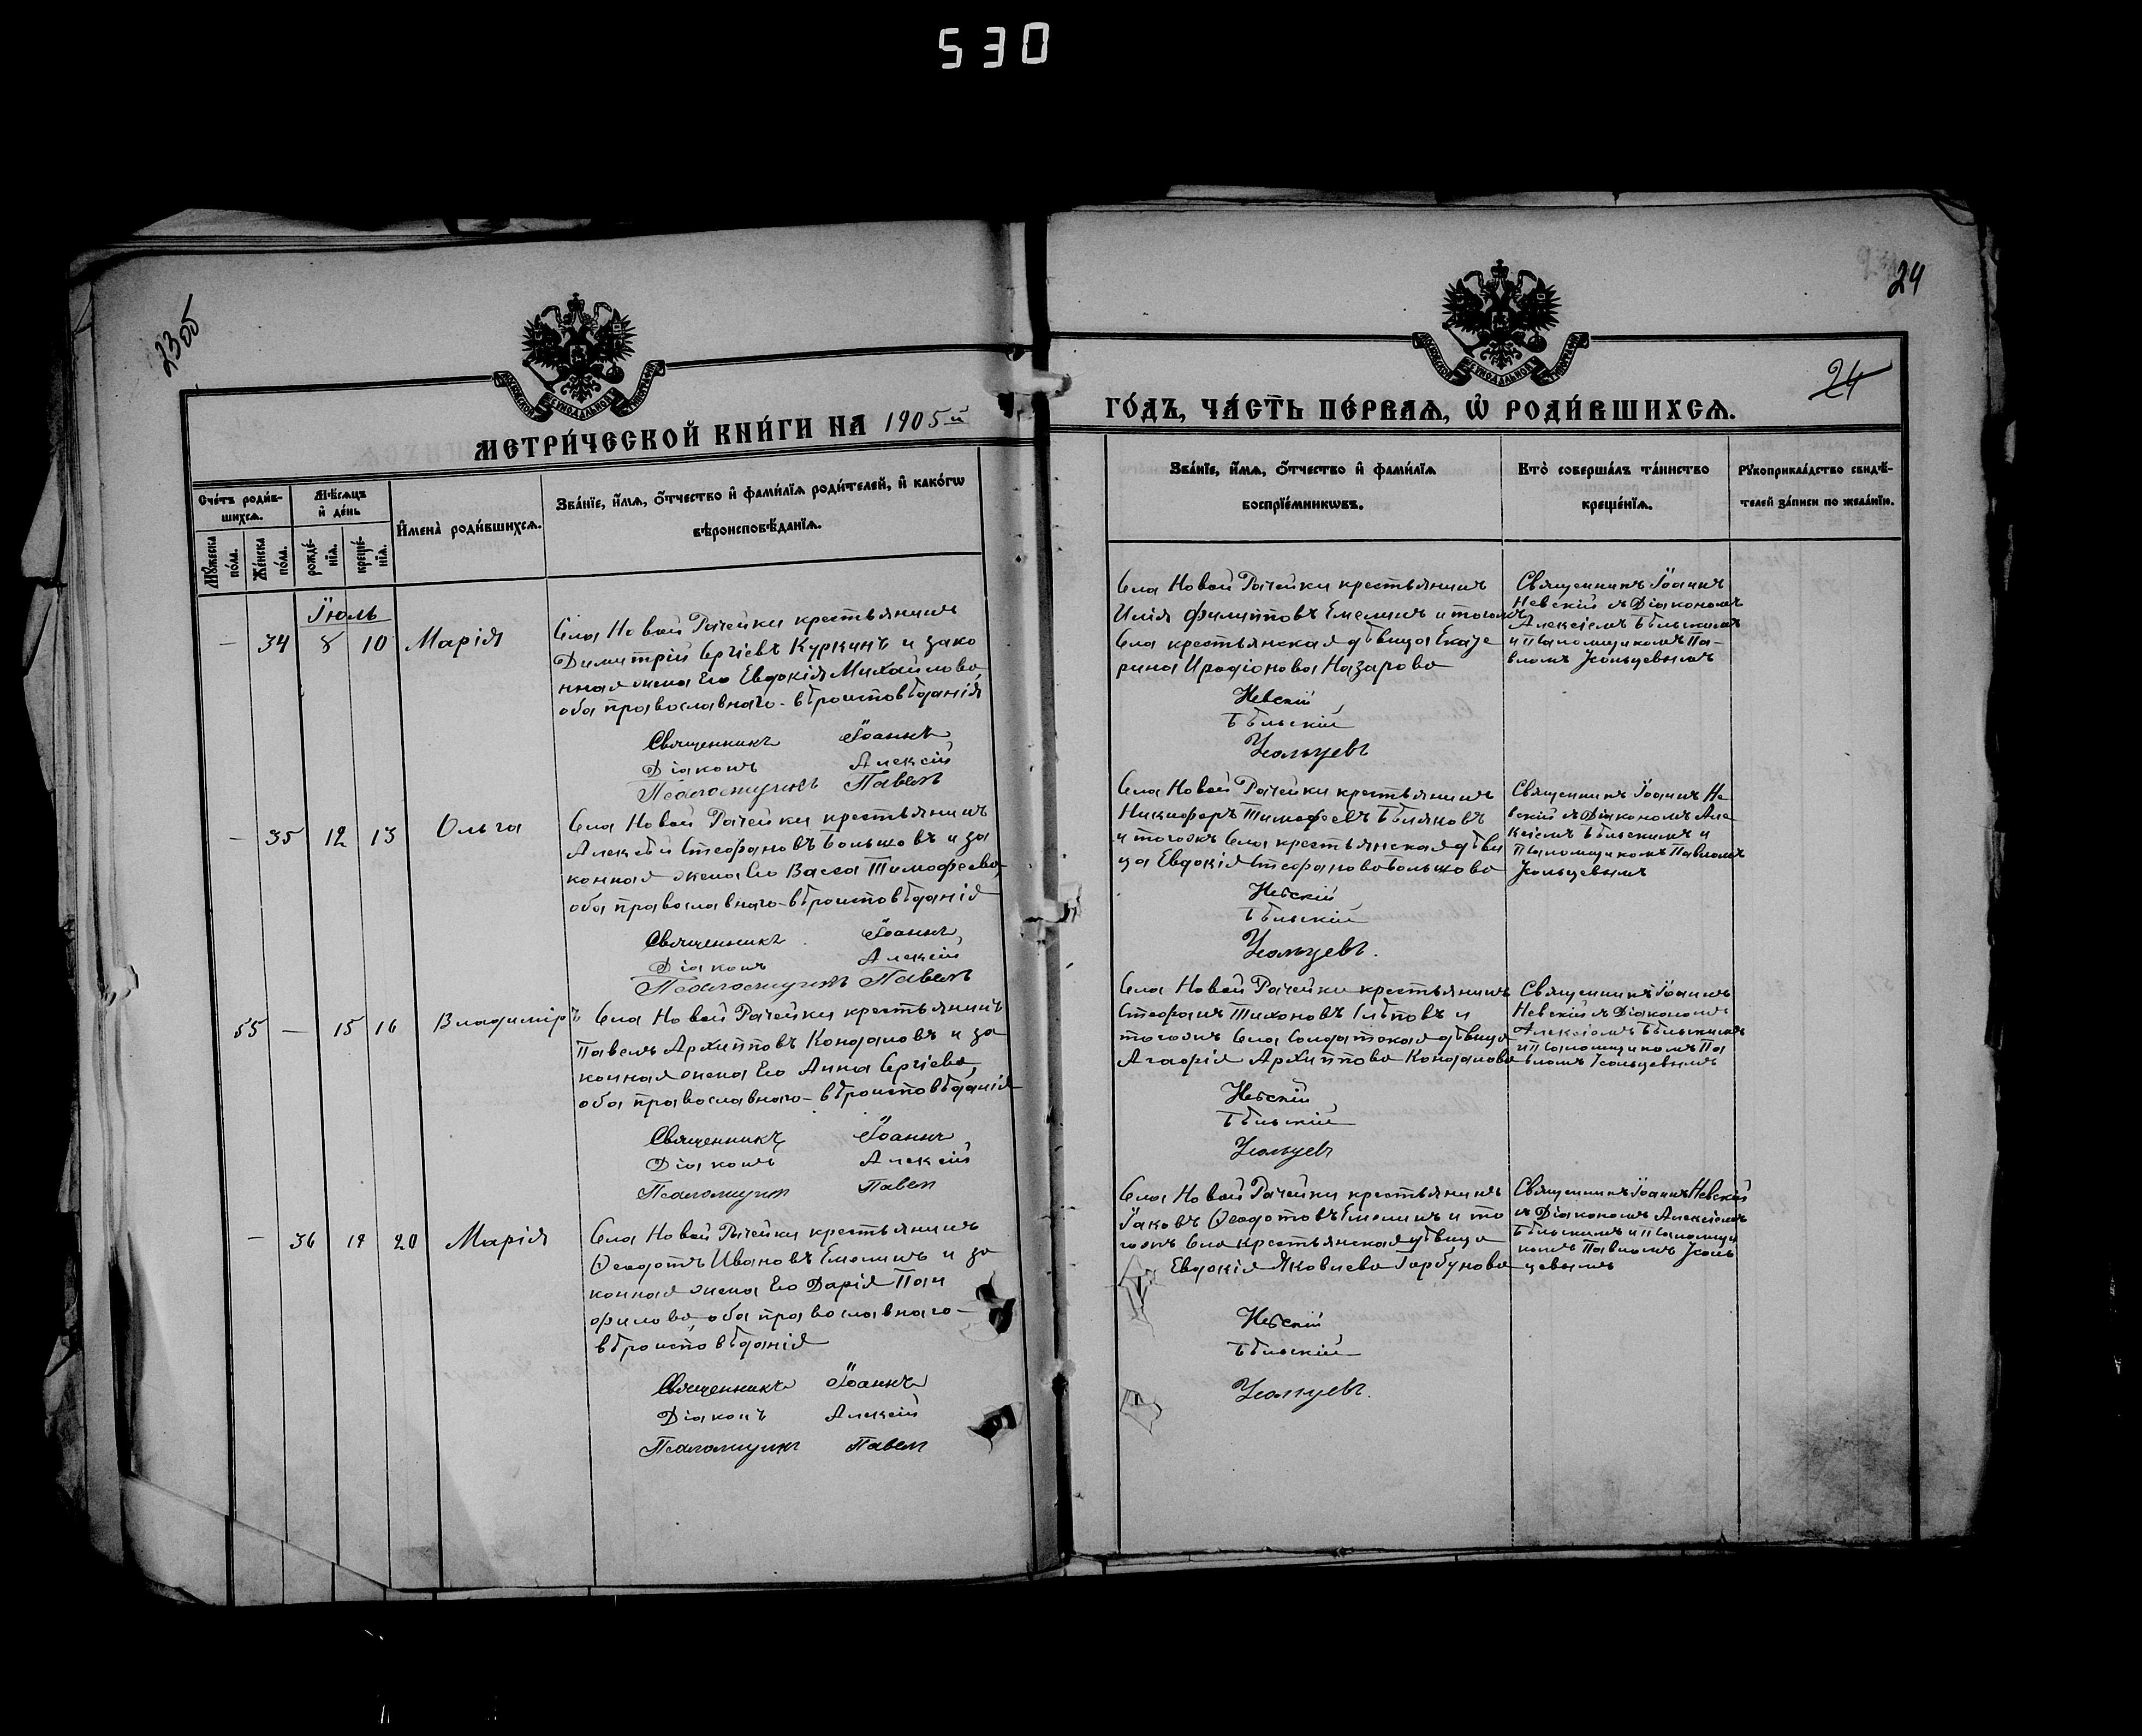 530
23об
24
24
МЕТРИ́ЧЕСКОЙ КНИ́ГИ НА 1905й
ГО́ДЪ, ЧА́СТЬ ПЕ́РВАѦ, Ѡ҆ РОДИ́ВШИХСѦ.
Сче́тъ роди́в-
шихсѧ.
Мѣ́сѧцъ
и҆ де́нь
И҆мена̀ роди́вшихсѧ.
Зва́нїе, и҆́мѧ, ѻ҆́тчество и҆ фами́лїѧ роди́телей, и҆ како́гѡ
вѣроисповѣ́данїѧ.
Мꙋ́жеска
по́ла.
Же́нска
по́ла.
рожде́-
нїѧ.
креще́-
нїѧ.
Зва́нїе, и҆́мѧ, ѻ҆́тчество и҆ фами́лїѧ
воспрїе́мникѡвъ.
Кто̀ соверша́лъ та́инство
креще́нїѧ.
Рꙋкоприкла́дство свидѣ́-
телей за́писи по жела́нїю.
Іюль
— 34 8 10 Марія
Села Новой Рачейки крестьянинъ
Димитрій Сергіевъ Куркинъ и зако
нная жена Его Евдокія Михайлова,
оба православнаго-вѣроисповѣданія
Священникъ Іоаннъ
Діаконъ Алексій
Псаломщикъ Павелъ
Села Новой Рачейки крестьянинъ
Илія Филипповъ Емелинъ и тогожъ
Села крестьянская дѣвица Екате
рина Иродіонова Назарова
Невскій
Бѣльскій
Усольцевъ
Священникъ Іоаннъ
Невскій съ Діакономъ
Алексіемъ Бѣльскимъ
и Псаломщикомъ Па-
вломъ Усольцевымъ
— 35 12 13 Ольга
Села Новой Рачейки крестьянинъ
Алексѣй Стефановъ Большовъ и за
конная жена Его Васса Тимофеева
оба православнаго-вѣроисповѣданія
Священникъ Іоаннъ
Діаконъ Алексій
Псаломщикъ Павелъ
Села Новой Рачейки крестьянинъ
Никифоръ Тимофеевъ Бѣляковъ
и тогожъ Села крестьянская дѣви
ца Евдокія Стефанова Большова
Невскій
Бѣльскій
Усольцевъ.
Священникъ Іоаннъ Не
вскій съ Діакономъ Але
ксіемъ Бѣльскимъ и
Псаломщикомъ Павломъ
Усольцевымъ
55 — 15 16 Владиміръ
Села Новой Рачейки крестьянинъ
Павелъ Архипповъ Кондаловъ и за
конная жена Его Анна Сергіева,
оба православнаго-вѣроисповѣданія
Священникъ Іоаннъ
Діаконъ Алексій
Псаломщикъ Павелъ
Села Новой Рачейки крестьянинъ
Стефанъ Тихоновъ Слѣповъ и
тогожъ Села Солдатская дѣвица
Агафія Архиппова Кондалова
Невскій
Бѣльскій
Усольцевъ
Священникъ Іоаннъ
Невскій съ Діакономъ
Алексіемъ Бѣльскимъ
и Псаломщикомъ Па
вломъ Усольцевымъ
— 36 19 20 Марія
Села Новой Рачейки крестьянинъ
Ѳеодотъ Ивановъ Емелинъ и за
конная жена Его Дарія Пан
филова, оба православнаго-
вѣроисповѣданія
Священникъ Іоаннъ
Діаконъ Алексій
Псаломщикъ Павелъ
Села Новой Рачейки крестьянинъ
Іаковъ Ѳеодотовъ Емелинъ и то
гожъ Села крестьянская дѣвица
Евдокія Яковлева Горбунова
Невскій
Бѣльскій
Усольцевъ.
Священникъ Іоаннъ Невскій
съ Діакономъ Алексіемъ
Бѣльскимъ и Псаломщи
комъ Павломъ Усоль
цевымъ